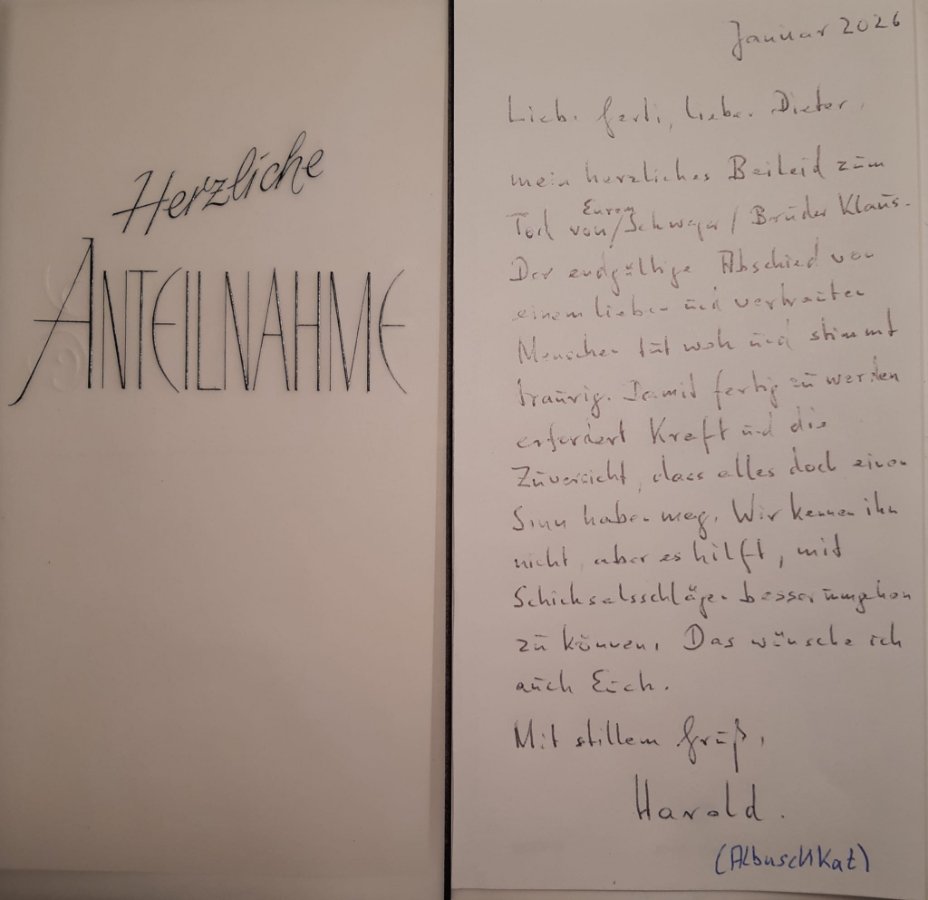 Herzliche
ANTEILNAHME
Januar 2026
Liebe Gerti, lieber Dieter,
mein herzliches Beileid zum
Tod von / Eurem Schwager / Bruder Klaus.
Der endgültige Abschied von
einem lieben und vertrauten
Menschen tut weh und stimmt
traurig. Damit fertig zu werden
erfordert Kraft und die
Zuversicht, dass alles doch einen
Sinn haben mag. Wir kennen ihn
nicht, aber es hilft, mit
Schicksalsschlägen besser umgehen
zu können. Das wünsche ich
auch Euch.
Mit stillem Gruß,
Harold.
(Albuschkat)